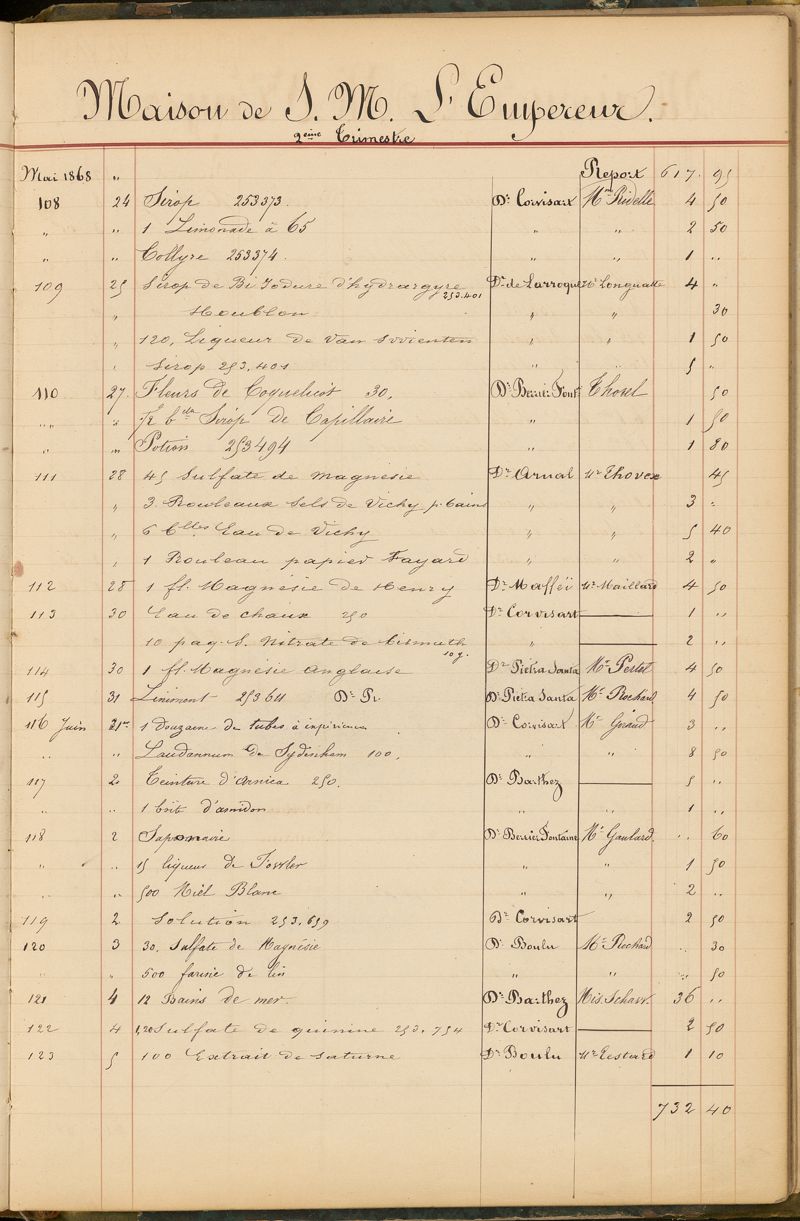 Maison de S. M. L'Empereur.
2ème Trimestre
Mai 1868 " Report 617. 95
108 24 Sirop 253373. Dr Corvisart Mme Ridelle 4 50
" " 1 Limonade à 65 " " 2 50
" " Collyre 253374. " " 1 "
109 25 Sirop de Bi Iodure d'hydrargyre 253.401 Dr de Larroque Mr Longuatte 4 "
" Houblon " " 30
" 120. Liqueur de Van Swieten " " 1 50
" Sirop 253.401 " " 5 "
110 27. Fleurs de Coquelicot 30. Dr Berrier Font. Thorel 50
" " " 1/2 blle Sirop De Capillaire " 1 50
" " Potion 253494 " 1 80
111 28 45 Sulfate de Magnésie Dr Arnal Mr Thovex 45
" 3. Rouleaux Sels de Vichy p. bains " " 3 "
" 6 blles Eau de Vichy " " 5 40
" 1 Rouleau papier Fayard " " 2 "
112 28 1 fl. Magnésie de Henry Dr Maffeï Mr Maillard 4 50
113 30 Eau de chaux 250 Dr Corvisart 1 "
10 paq. S. Nitrate de bismuth 10 g. " 2 "
114 30 1 fl. Magnésie anglaise Dr Pietra Santa Mr Pertot 4 50
115 31 Liniment 253611 Dr Pr. Dr Pietra Santa Mr Rochard 4 50
116 Juin 1er 1 Douzaine de tubes à Dr Corvisart Mr Giraud 3 "
" " Laudannum de Sydenham 100. " " 8 50
117 2 Teinture d'Arnica 250. Dr Barthez 5 "
" " 1 boite d'amidon " " 1 "
118 2 Saponaire Dr Berrier Fontaine Mr Gaulard. " 60
" " 15 liqueur de Fowler " " 1 50
" " 500 Miel Blanc " " 2 "
119 2 Solution 253.659 Dr Corvisart 2 50
120 3 30. Sulfate de Magnésie Dr Boulu Mr Rochard " 30
" " 500 farine de lin " " " 50
121 4 12 Bains de mer. Dr Barthez Mis Schaw. 36 "
122 4 1,20 Sulfate de quinine 253.754 Dr Corvisart 2 50
123 5 100 Extrait de saturne Dr Boulu Mr Testard 1 10
732 40